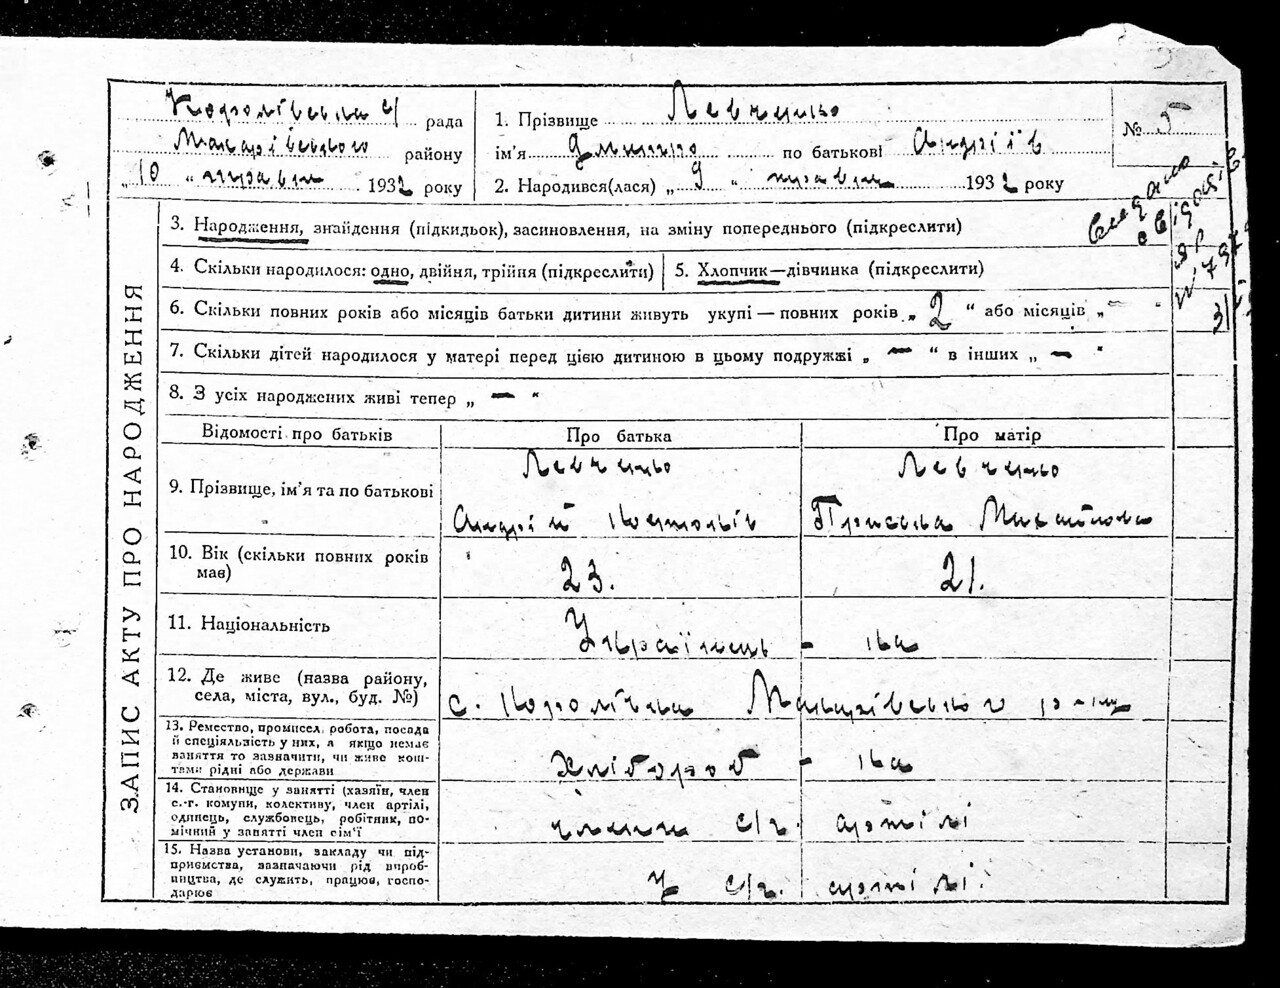 Королівська с/ рада
Макарівського району
„ 10 “ травня 1932 року
1. Прізвище Левченко
ім’я Дмитро по батькові Андріїв
2. Народився(лася) „ 9 “ травня 1932 року
№ 5
ЗАПИС АКТУ ПРО НАРОДЖЕННЯ
3. Народження, знайдення (підкидьок), засиновлення, на зміну попереднього (підкреслити)
4. Скільки народилося: одно, двійня, трійня (підкреслити)
5. Хлопчик—дівчинка (підкреслити)
6. Скільки повних років або місяців батьки дитини живуть укупі — повних років „ 2 “ або місяців „ — “
7. Скільки дітей народилося у матері перед цією дитиною в цьому подружжі „ — “ в інших „ — “
8. З усіх народжених живі тепер „ — “
Відомості про батьків
Про батька
Про матір
9. Прізвище, ім’я та по батькові
Левченко
Андрій
Левченко
Михайлова
10. Вік (скільки повних років
має)
23.
21.
11. Національність
Українець - ка
12. Де живе (назва району,
села, міста, вул., буд. №)
с. Королівка Макарівського р-ну
13. Ремество, промисел, робота, посада
й спеціяльність у них, а якщо немає
заняття то зазначити, чи живе кош-
тами рідні або держави
Хлібороб - ка
14. Становище у занятті (хазяїн, член
с.-г. комуни, колективу, член артілі,
одинець, службовець, робітник, по-
мічний у занятті член сім’ї
члени с/г. артілі
15. Назва установи, закладу чи під-
приємства, зазначаючи рід вироб-
ництва, де служить, працює, госпо-
дарює
У с/г. артілі.